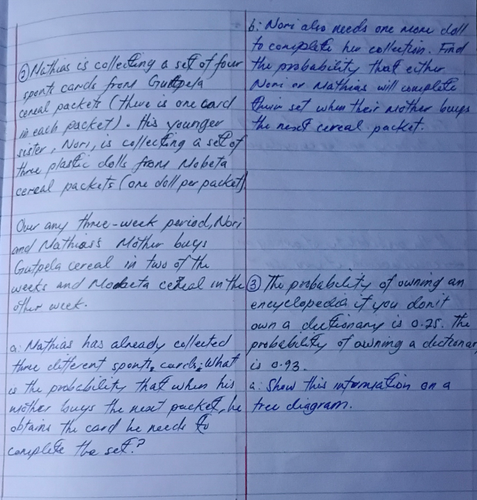 ② Nathias is collecting a set of four
sports cards from Gutpela
cereal packets (there is one card
in each packet). His younger
sister, Nori, is collecting a set of
three plastic dolls from Nobeta
cereal packets (one doll per packet)
Over any three-week period, Nori
and Nathias's Mother buys
Gutpela cereal in two of the
weeks and cereal in the
other week.
a: Nathias has already collected
three different sports cards. What
is the probability that when his
mother buys the next packet, he
obtains the card he needs to
complete the set?
b: Nori also needs one more doll
to complete her collection. Find
the probability that either
Nori or Nathias will complete
their set when their mother buys
the next cereal packet.
③ The probability of owning an
encyclopedia if you don't
own a dictionary is 0.25. The
probability of owning a dictionary
is 0.93.
a: Show this information on a
tree diagram.